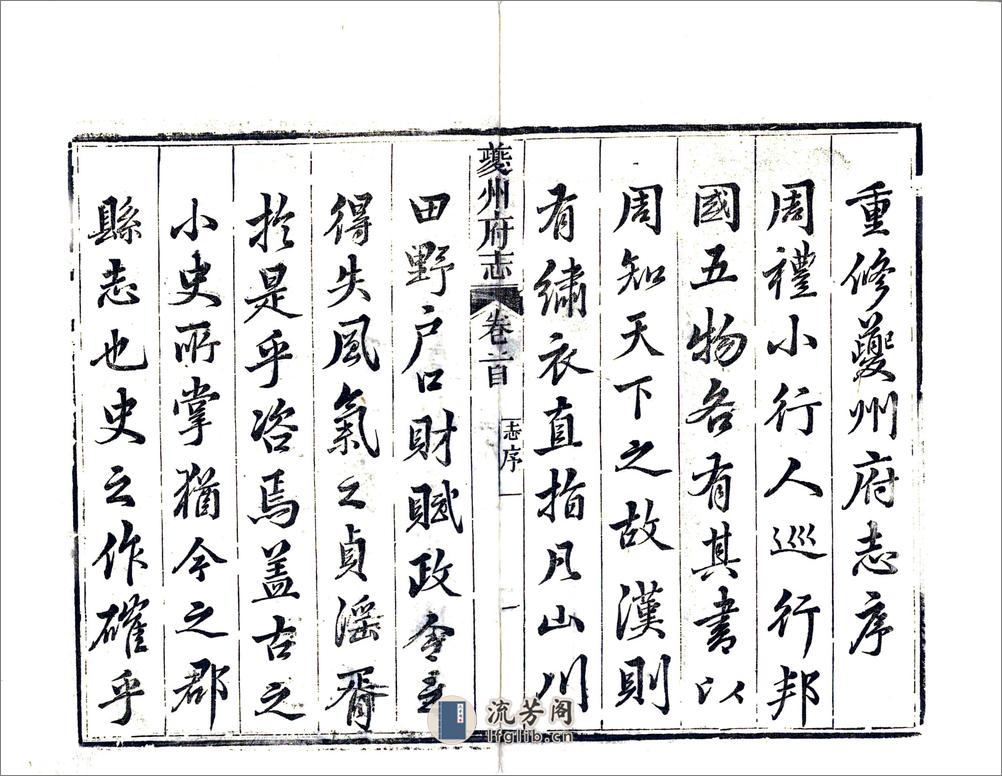 重修夔州府志序
周禮小行人巡行邦
國五物各有其書以
周知天下之故漢則
有繡衣直指凡山川
夔州府志
卷之首
志序
一
田野户口財賦政令
得失風氣之貞淫胥
扵是乎咨焉蓋古之
小史所掌猶今之郡
縣志也史之作確乎
流芳阁
lfglib.cn